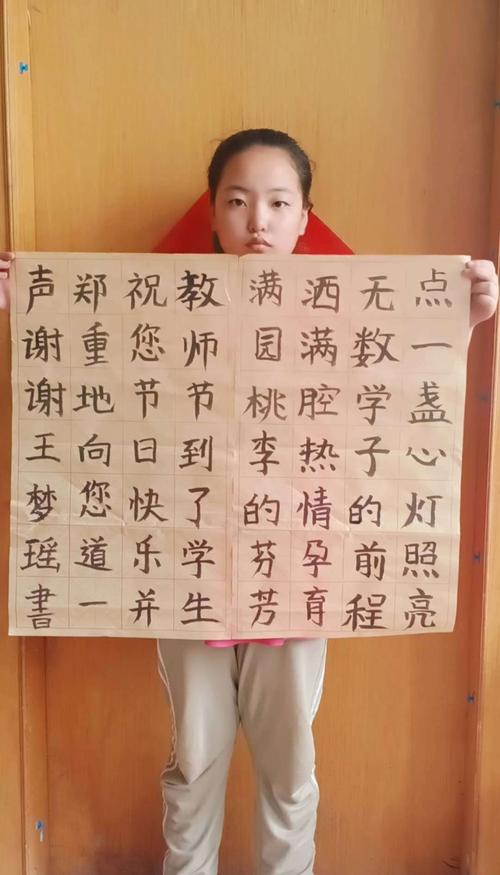 点一盏心灯照亮
无数学子的前程
洒满腔热情孕育
满园桃李的芬芳
教师节到了学生
祝您节日快乐并
郑重地向您道一
声谢谢王梦瑶書